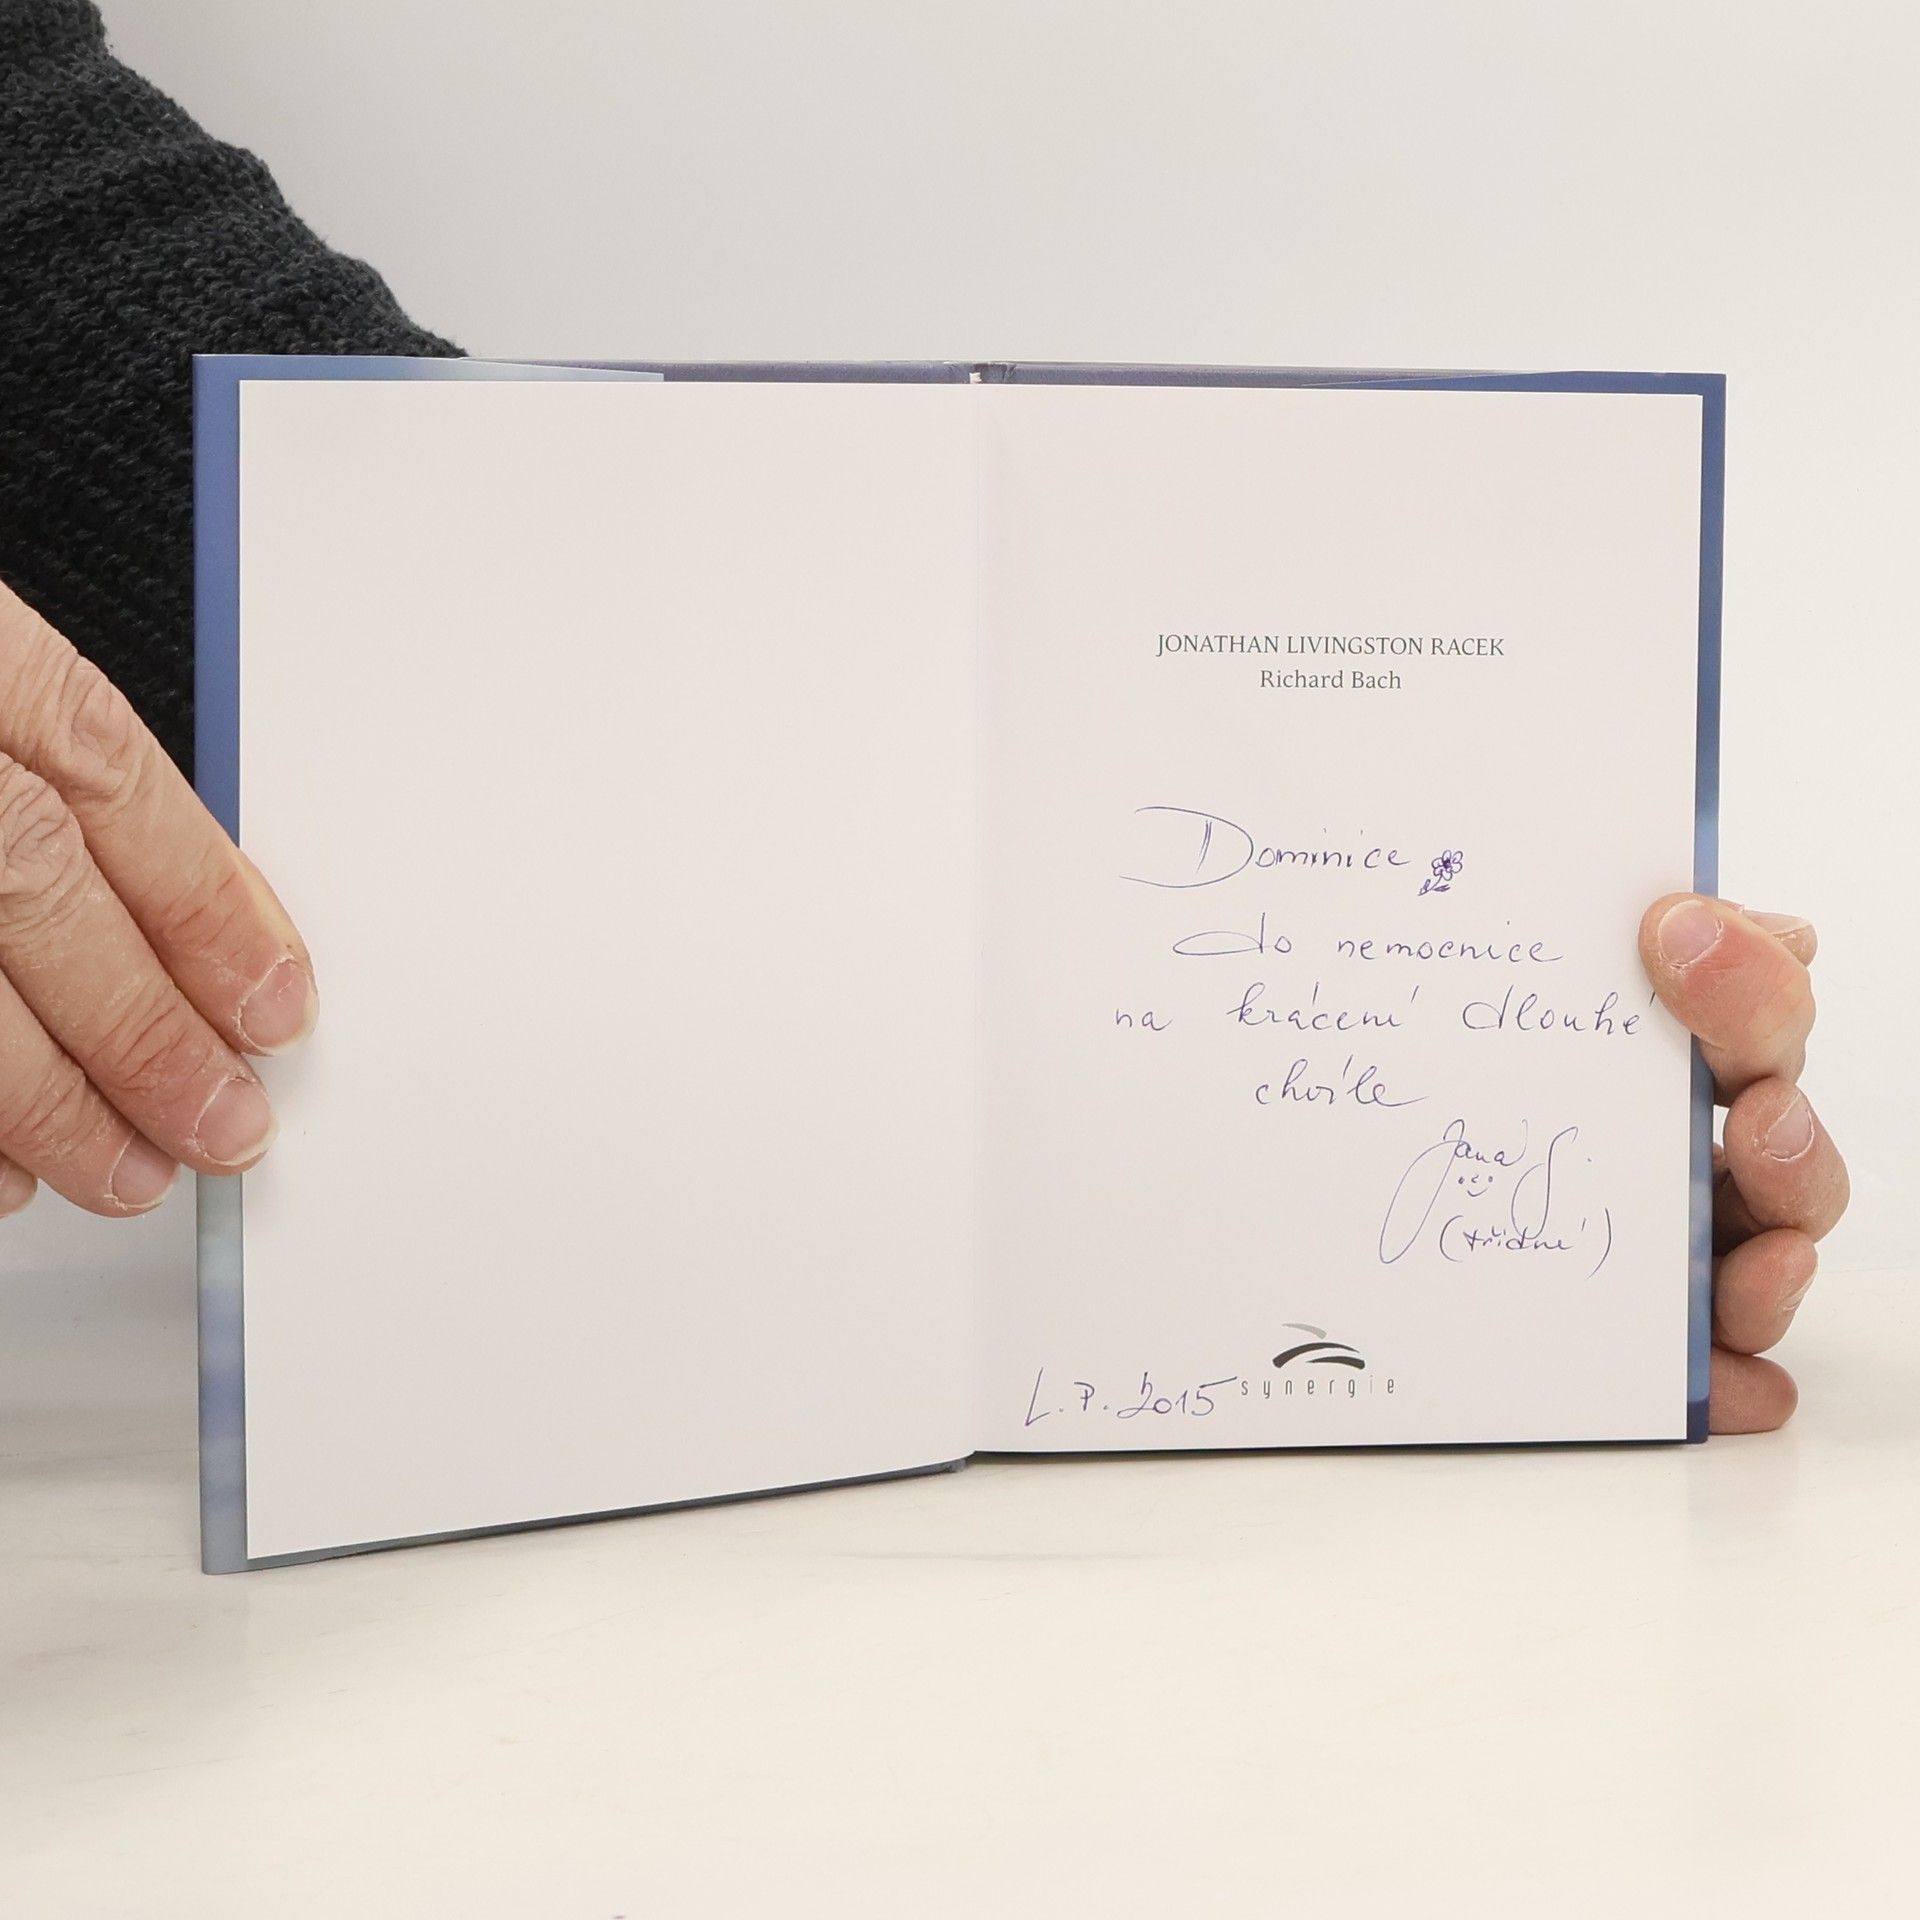 JONATHAN LIVINGSTON RACEK
Richard Bach
Dominice
do nemocnice
na krácení dlouhé
chvíle
Jana S.
(třídní)
synergie
L.P. 2015